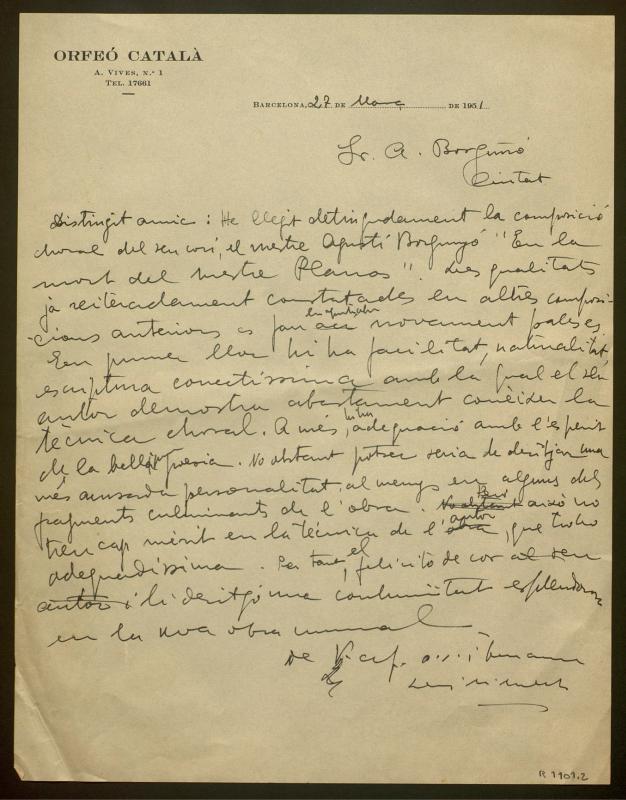 ORFEÓ CATALÀ
A. VIVES, N.º 1
TEL. 17661
BARCELONA, 27 DE Març DE 1951
Sr. A. Borgunó
Ciutat
Distingit amic: He llegit detingudament la composició
choral del seu cosí, el mestre Agustí Borgunyó "En la
mort del mestre Planas". Les qualitats
ja reiteradament constatades en altres composi-
cions anteriors es fan novament paleses.
En primer lloc hi ha facilitat, naturalitat,
escriptura correctíssima amb la qual el seu
autor demostra abastament conèixer la
tècnica choral. A més, hi ha adequació amb l'esperit
de la bella poesia. No obstant potser seria de desitjar una
més acusada personalitat, al menys en alguns dels
fragments culminants de l'obra. No obstant Però això no
treu cap mèrit en la tècnica de l'obra autor, que trobo
adequadíssima. Per tant, el felicito de cor al seu
autor i li desitjo una continuitat esplendorosa
en la seva obra musical
de V. af.
R 1901.2